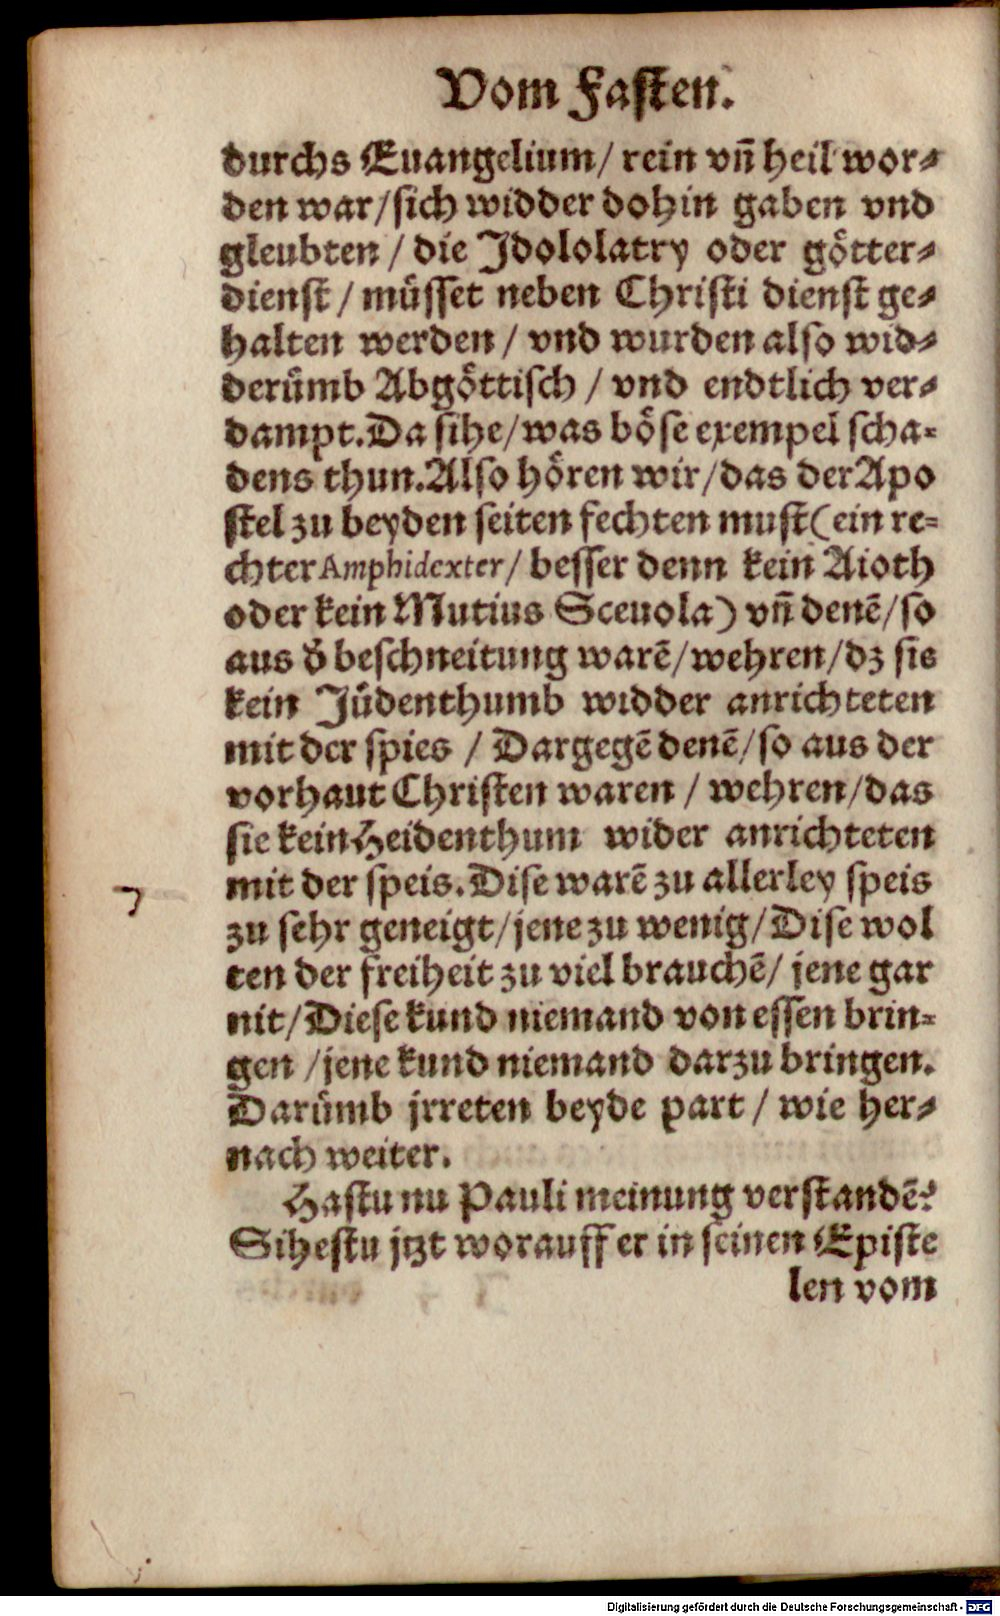 Vom Fasten.
durchs Euangelium/ rein vn̄ heil wor⸗
den war/sich widder dohin gaben vnd
gleubten / die Jdololatry oder goͤtter⸗
dienst / muͤsset neben Christi dienst ge⸗
halten werden / vnd wurden also wid⸗
deruͤmb Abgoͤttisch / vnd endtlich ver⸗
dampt. Da sihe/was boͤse exempel scha⸗
dens thun. Also hoͤren wir/das der Apo
stel zu beyden seiten fechten must (ein re⸗
chter Amphidexter/ besser denn kein Aioth
oder kein Mutius Sceuola) vn̄ denē/so
aus d̕ beschneitung warē/wehren/dz sie
kein Juͤdenthumb widder anrichteten
mit der spies / Dargegē denē/so aus der
vorhaut Christen waren / wehren/das
sie kein Heidenthum wider anrichteten
mit der speis. Dise warē zu allerley speis
zu sehr geneigt/jene zu wenig/Dise wol
ten der freiheit zu viel brauchē/ jene gar
nit/Diese kund niemand von essen brin⸗
gen /jene kund niemand darzu bringen.
Daruͤmb jrreten beyde part / wie her⸗
nach weiter.
Hastu nu Pauli meinung verstandē?
Sihestu jtzt worauff er in seinen Episte
len vom
Digitalisierung gefördert durch die Deutsche Forschungsgemeinschaft - DFG